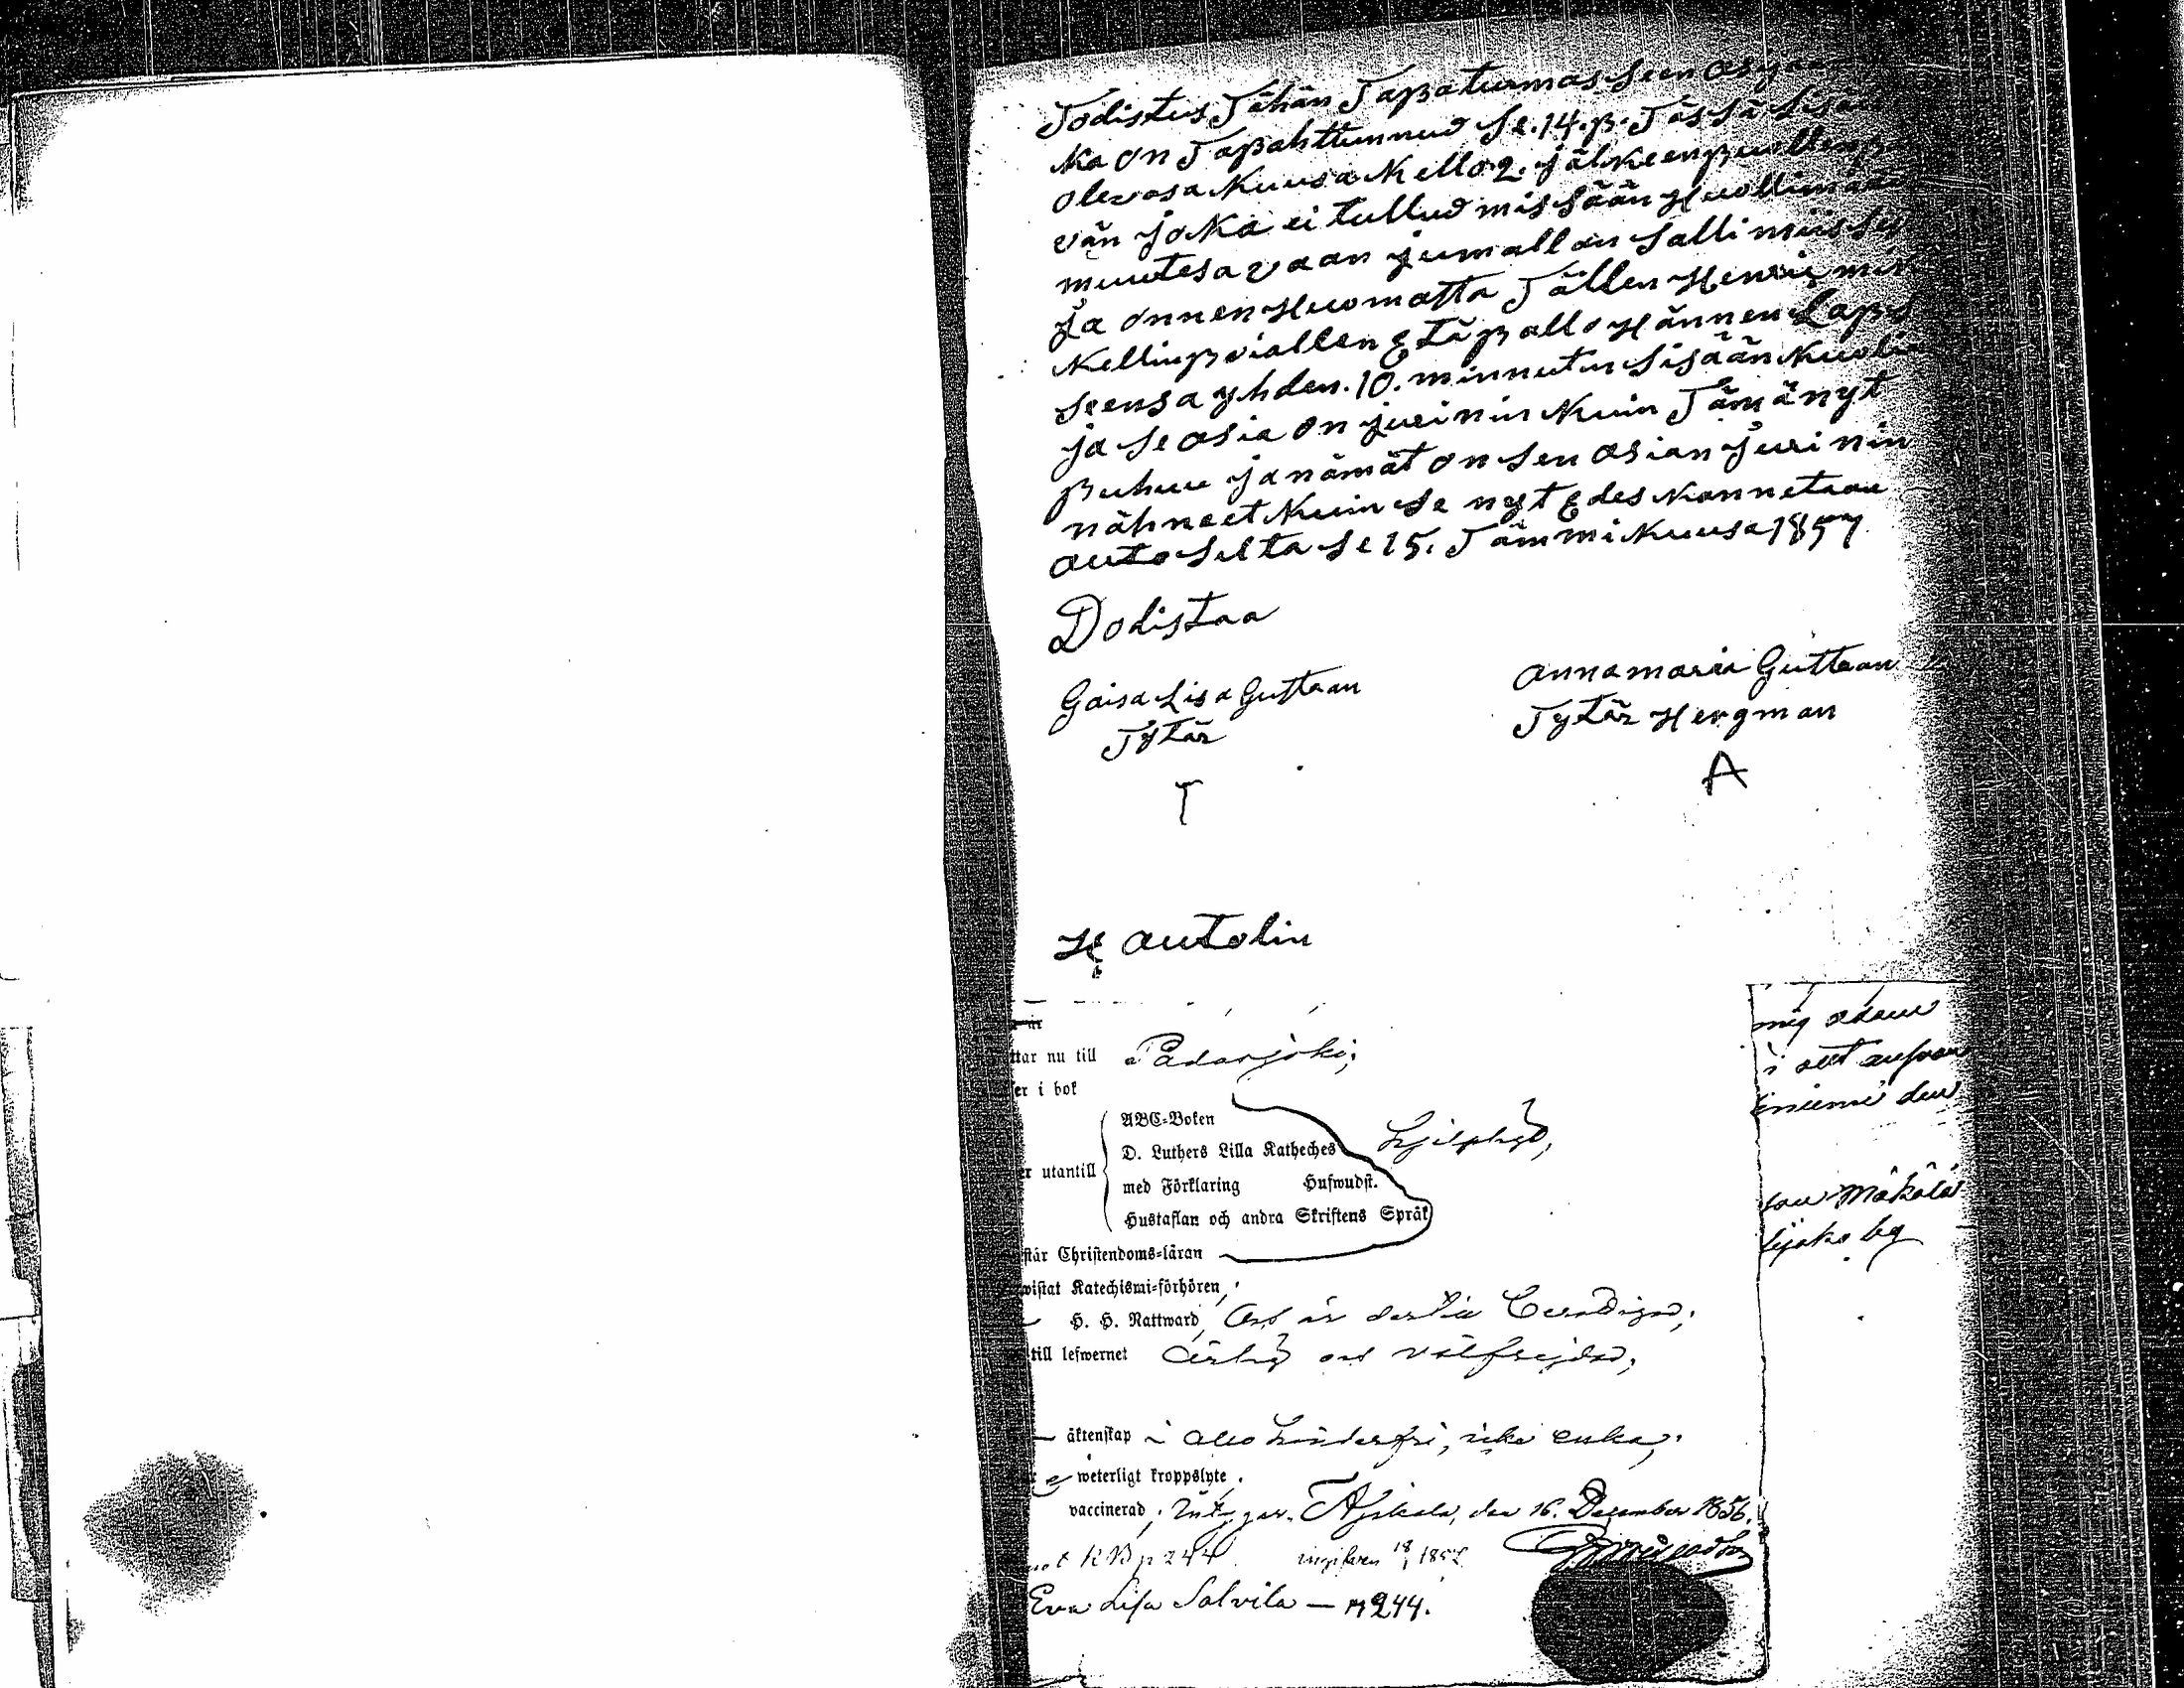 Todistus Tähän Tapaturmas seen
ka on Tapahttunnud se. 14. p. Tässä sisän
olevasa Kuusa Kello 2. jälkeenpuollen p
vän joka ei tullud missään Huollimatt
muutesa vaan jumallan sallimiisse
ja onnen Huomatta Tällen Henri
Kellinpoiallen Etä pallo Hännen Laps
seensa yhden. 10. minnutin sisään Kuoli
ja se asia on juri nin Kuin Tämä nyt
puhuu ja nämät on sen asian juri nin
nähneet Kuin se nyt Edes Kannetaan
auto selta se 15. Tämmi Kuusa 1857
Dodistaa
Gaisa Lisa Gustaan
Tytär
T
Annamaria Gustaan
Tytär Hergman
A
H autolin
ttar nu till Padasjoki;
er i bok
ABC-Boken
D. Luthers Lilla Katheches
er utantill
med Förklaring Hufwudst.
Hustaflan och andra Skriftens Språk
Hjelpligt,
står Christendoms-läran
wistat Katechismi-förhören,
H. H. Nattward, och är dertill berättigad;
till lefwernet Ärlig och välfrejdad;
äktenskap i allo hinderfri, icke enka;
weterligt kroppslyte.
vaccinerad; den 16. December 1856.
KB p 244. 18/1 1857
Eva Lisa Salvila — p 244.
mig
i ett
den
Mäkälä